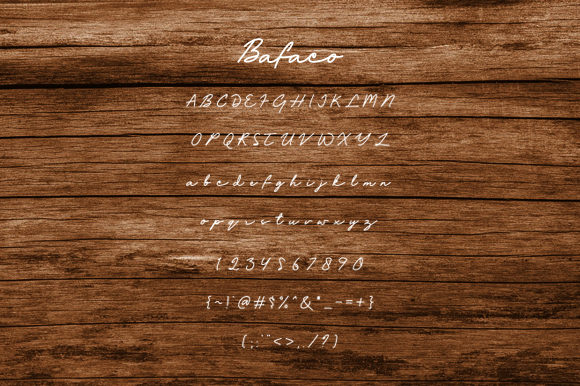 Bafaco
A B C D E F G H I J K L M N
O P Q R S T U V W X Y Z
a b c d e f g h i j k l m n
o p q r s t u v w x y z
1 2 3 4 5 6 7 8 9 0
{ ~ ! ` @ # $ % ^ & * _ - = + }
( ; : ' " < > , . / ? )